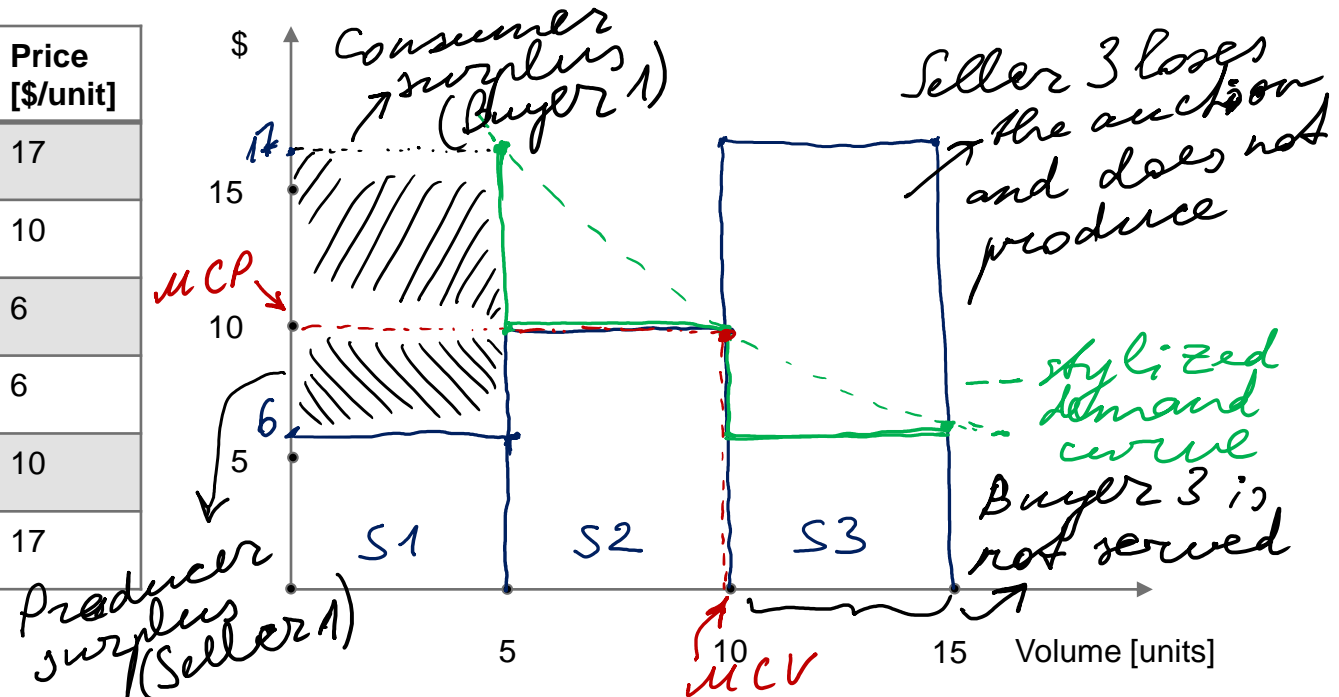 Price
[$/unit]
17
10
6
6
10
17
$
17
15
10
6
5
MCP
Consumer
surplus
(Buyer 1)
Seller 3 loses
the auction
and does not
produce
stylized
demand
curve
Buyer 3 is
not served
S1
S2
S3
Producer
surplus
(Seller 1)
5
10
15
Volume [units]
MCV